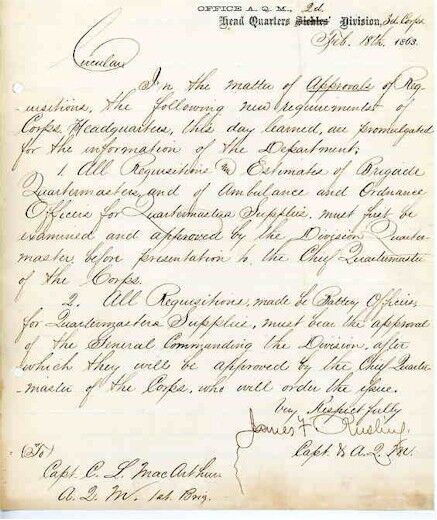 OFFICE A. Q. M., 2d.
Head Quarters Sickles' Division, 3d. Corps
Feb. 18th, 1863.
Circular
In the matter of Approvals of Req-
uisitions, the following new requirements of
Corps, Headquarters, this day learned, are promulgated
for the information of the Department;
1. All Requisitions Estimates of Brigade
Quartermasters, and of Ambulance and Ordnance
Officers for Quartermasters Supplies, must first be
examined and approved by the Division Quarter-
master, before presentation to the Chief Quartermaster
of the Corps.
2. All Requisitions, made by Battery Officers,
for Quartermasters Supplies, must bear the approval
of the General Commanding the Division, after
which they will be approved by the Chief Quarter-
master of the Corps, who will order the issue.
Very Respectfully
James F. Rusling,
Capt. & A. Q. M.
(To)
Capt. C. L. MacArthur
A. Q. M. 1st. Brig.